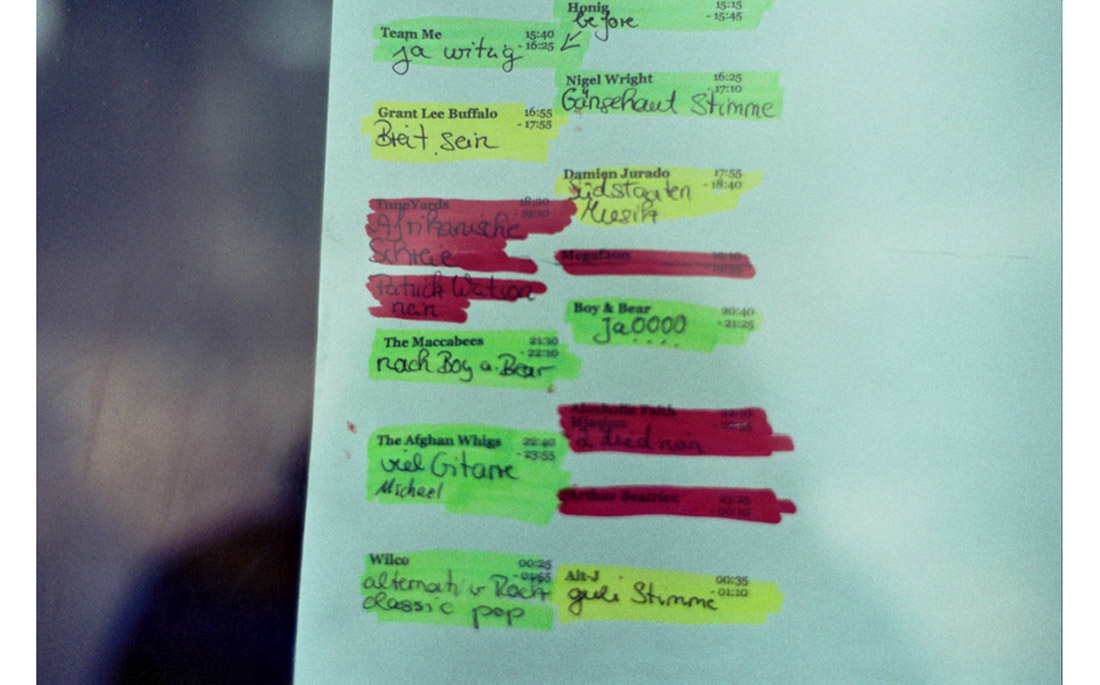 Honig 15:15
before - 15:45
Team Me 15:40
ja witzig - 16:25
Nigel Wright 16:25
- 17:10
Gänsehaut Stimme
Grant Lee Buffalo 16:55
- 17:55
Breit sein
Damien Jurado 17:55
- 18:40
Südstaaten
Musik
TuneYards 18:20
- 19:10
Afrikanische
Schreie
Megafaun 19:10
Patrick Watson
nan
Boy & Bear 20:40
- 21:25
JaOOOO
....
The Maccabees 21:10
- 22:10
nach Boy a. Bear
Alcoholic Faith 22:10
Mission
nan
The Afghan Whigs 22:40
- 23:55
viel Gitarre
Michael
Arthur Beatrice 23:25
- 00:10
Wilco 00:25
- 01:55
alternativ Rock
classic pop
Alt-J 00:35
- 01:10
geile Stimme